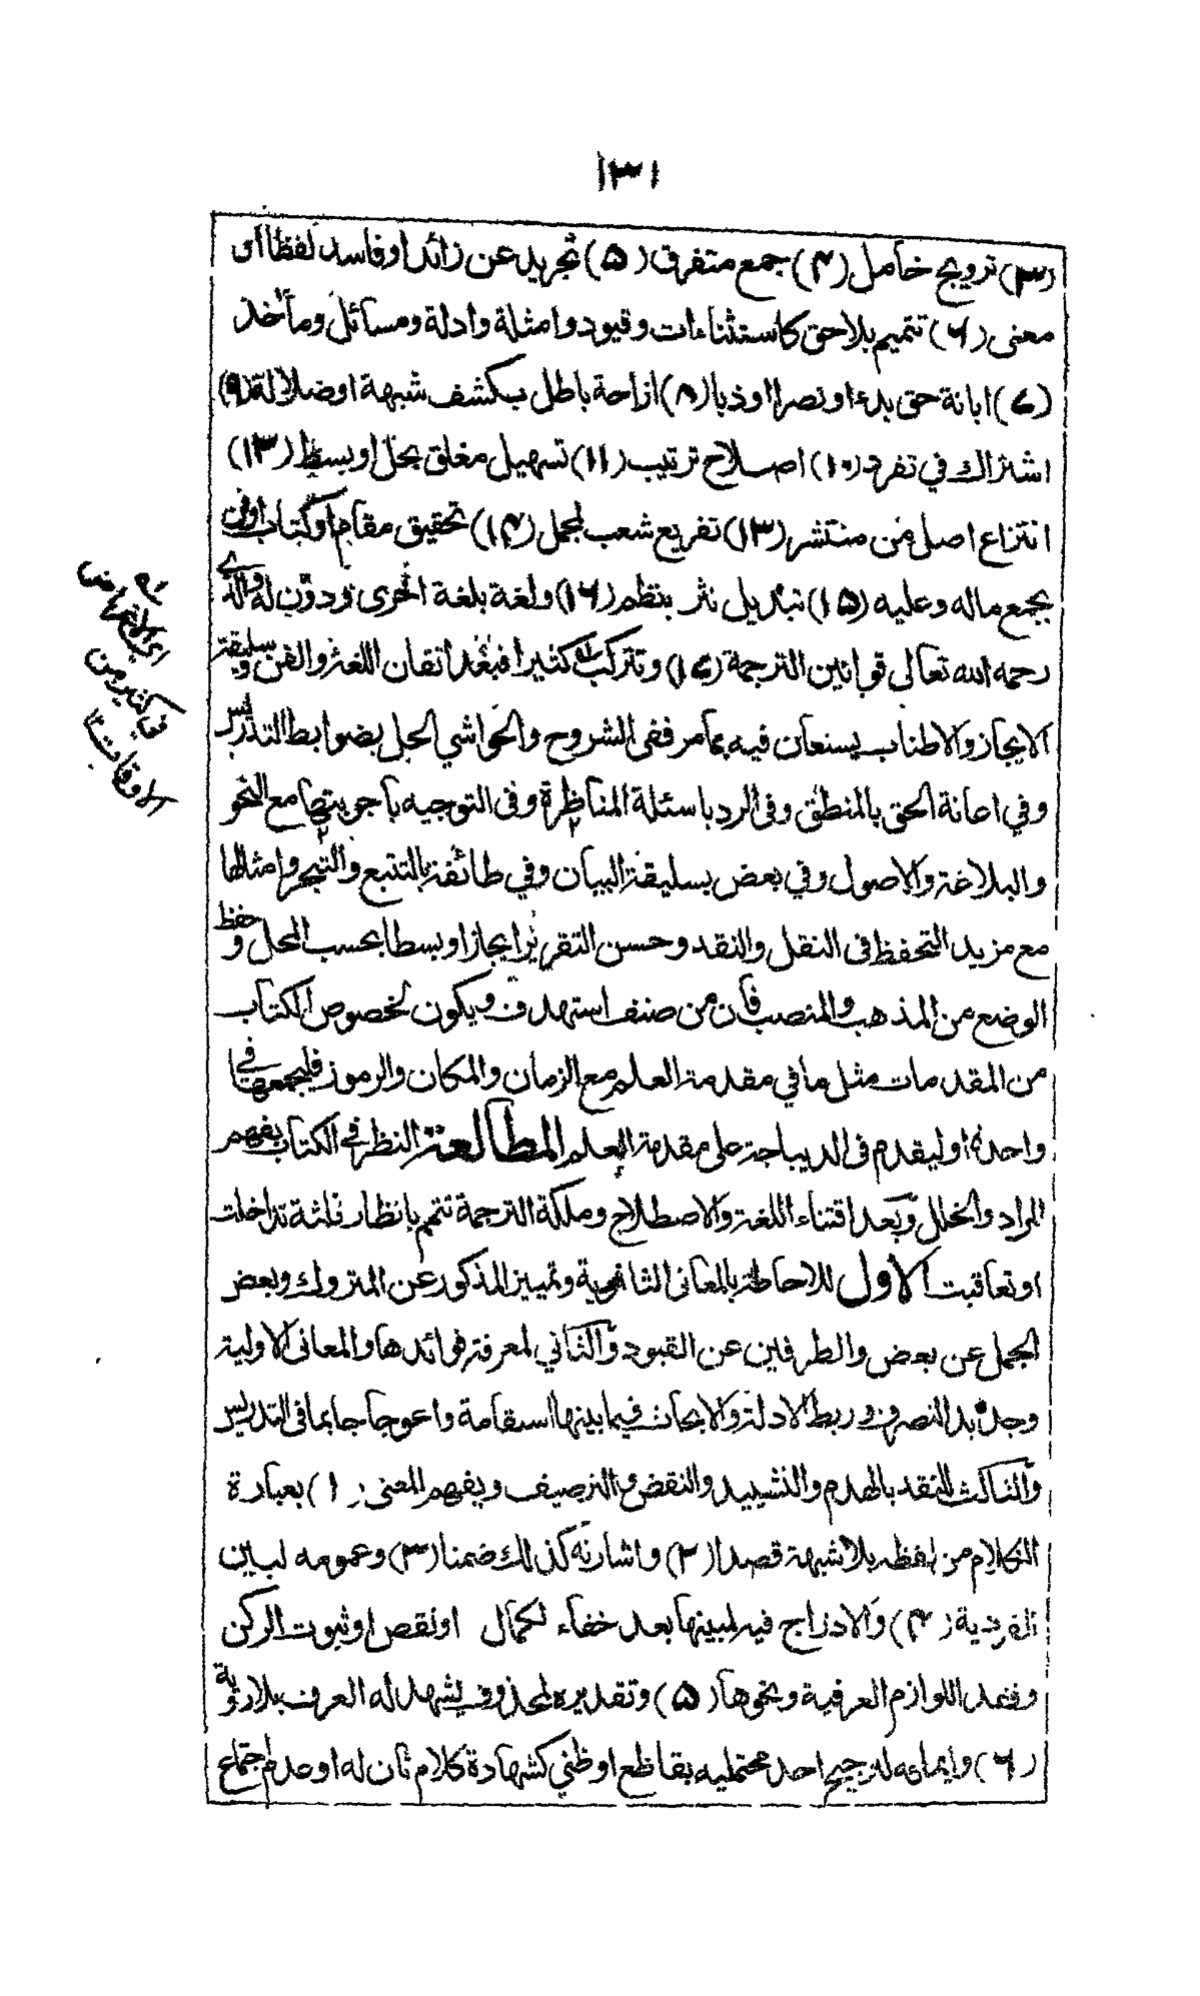 ١٣١
(٣) ترويج خامل (٤) جمع متفرق (٥) تجريد عن زائد او فاسد لفظا او
معنى (٦) تتميم بلاحق كاستثناءات وقيود وامثلة وادلة ومسائل ومآخذ
(٧) ابانة حق بدء او نصرا او ذبا (٨) ازاحة باطل بكشف شبهة او ضلالة (٩)
اشتراك في تفرد (١٠) اصلاح ترتيب (١١) تسهيل مغلق بحل او بسط (١٣)
انتزاع اصل من منتشر (١٣) تفريع شعب لمجمل (١٤) تحقيق مقام او كتاب او فن
بجمع ماله وعليه (١٥) تبديل نثر بنظم (١٦) ولغة بلغة اخرى ودوّن له والدي
رحمه الله تعالى قوانين الترجمة (١٧) وتتركب كثيرا فبعد اتقان اللغة والفن وسليقة
الايجاز والاطناب يستعان فيه بما مر ففى الشروح والحواشي الحل بضوابط التدريس
وفي اعانة الحق بالمنطق وفى الرد باسئلة المناظرة وفى التوجيه باجوبتها مع النحو
والبلاغة والاصول وفي بعض بسليقة البيان وفي طائفة بالتتبع والتبحر وامثالها
مع مزيد التحفظ فى النقل والنقد وحسن التقرير ايجازا وبسطا بحسب المحل وحفظ
الوضع من المذهب والمنصب فان من صنف استهدف ويكون لخصوص الكتاب
من المقدمات مثل ما في مقدمة العلم مع الزمان والمكان والرموز فليجمعها في
واحدة او ليقدم فى الديباجة على مقدمة العلم المطالعة النظر فى الكتاب بفهم
المراد والخلل وبعد اقتناء اللغة والاصطلاح وملكة الترجمة تتم بانظار ثلثة تداخلت
او تعاقبت الاول للاحاطة بالمعانى النحوية وتمييز المذكور عن المتروك وبعض
الجمل عن بعض والطرفين عن القيود والثاني لمعرفة فوائدها والمعانى الاولية
وربط الادلة والابحاث فيما بينها استقامة واعوجاجا بما فى التدريس
والثالث للنقد بالهدم والتشييد والنقض والترصيف ويفهم المعنى (١) بعبارة
الكلام من لفظه بلا شبهة قصدا (٢) واشارته كذلك ضمنا (٣) وعمومه لبيان
الفردية (٤) والادراج فيه لمبينها بعد خفاء لكمال او نقص او ثبوت الركن
وفقد اللوازم العرفية ونحوها (٥) وتقديره لمحذوف يشهد له العرف بلا روية
(٦) وايمائه لترجيح احد محتمليه بقاطع او ظني كشهادة كلام ثان له او عدم اجتماع
اي
فى كثير من
الاوقات ١٢